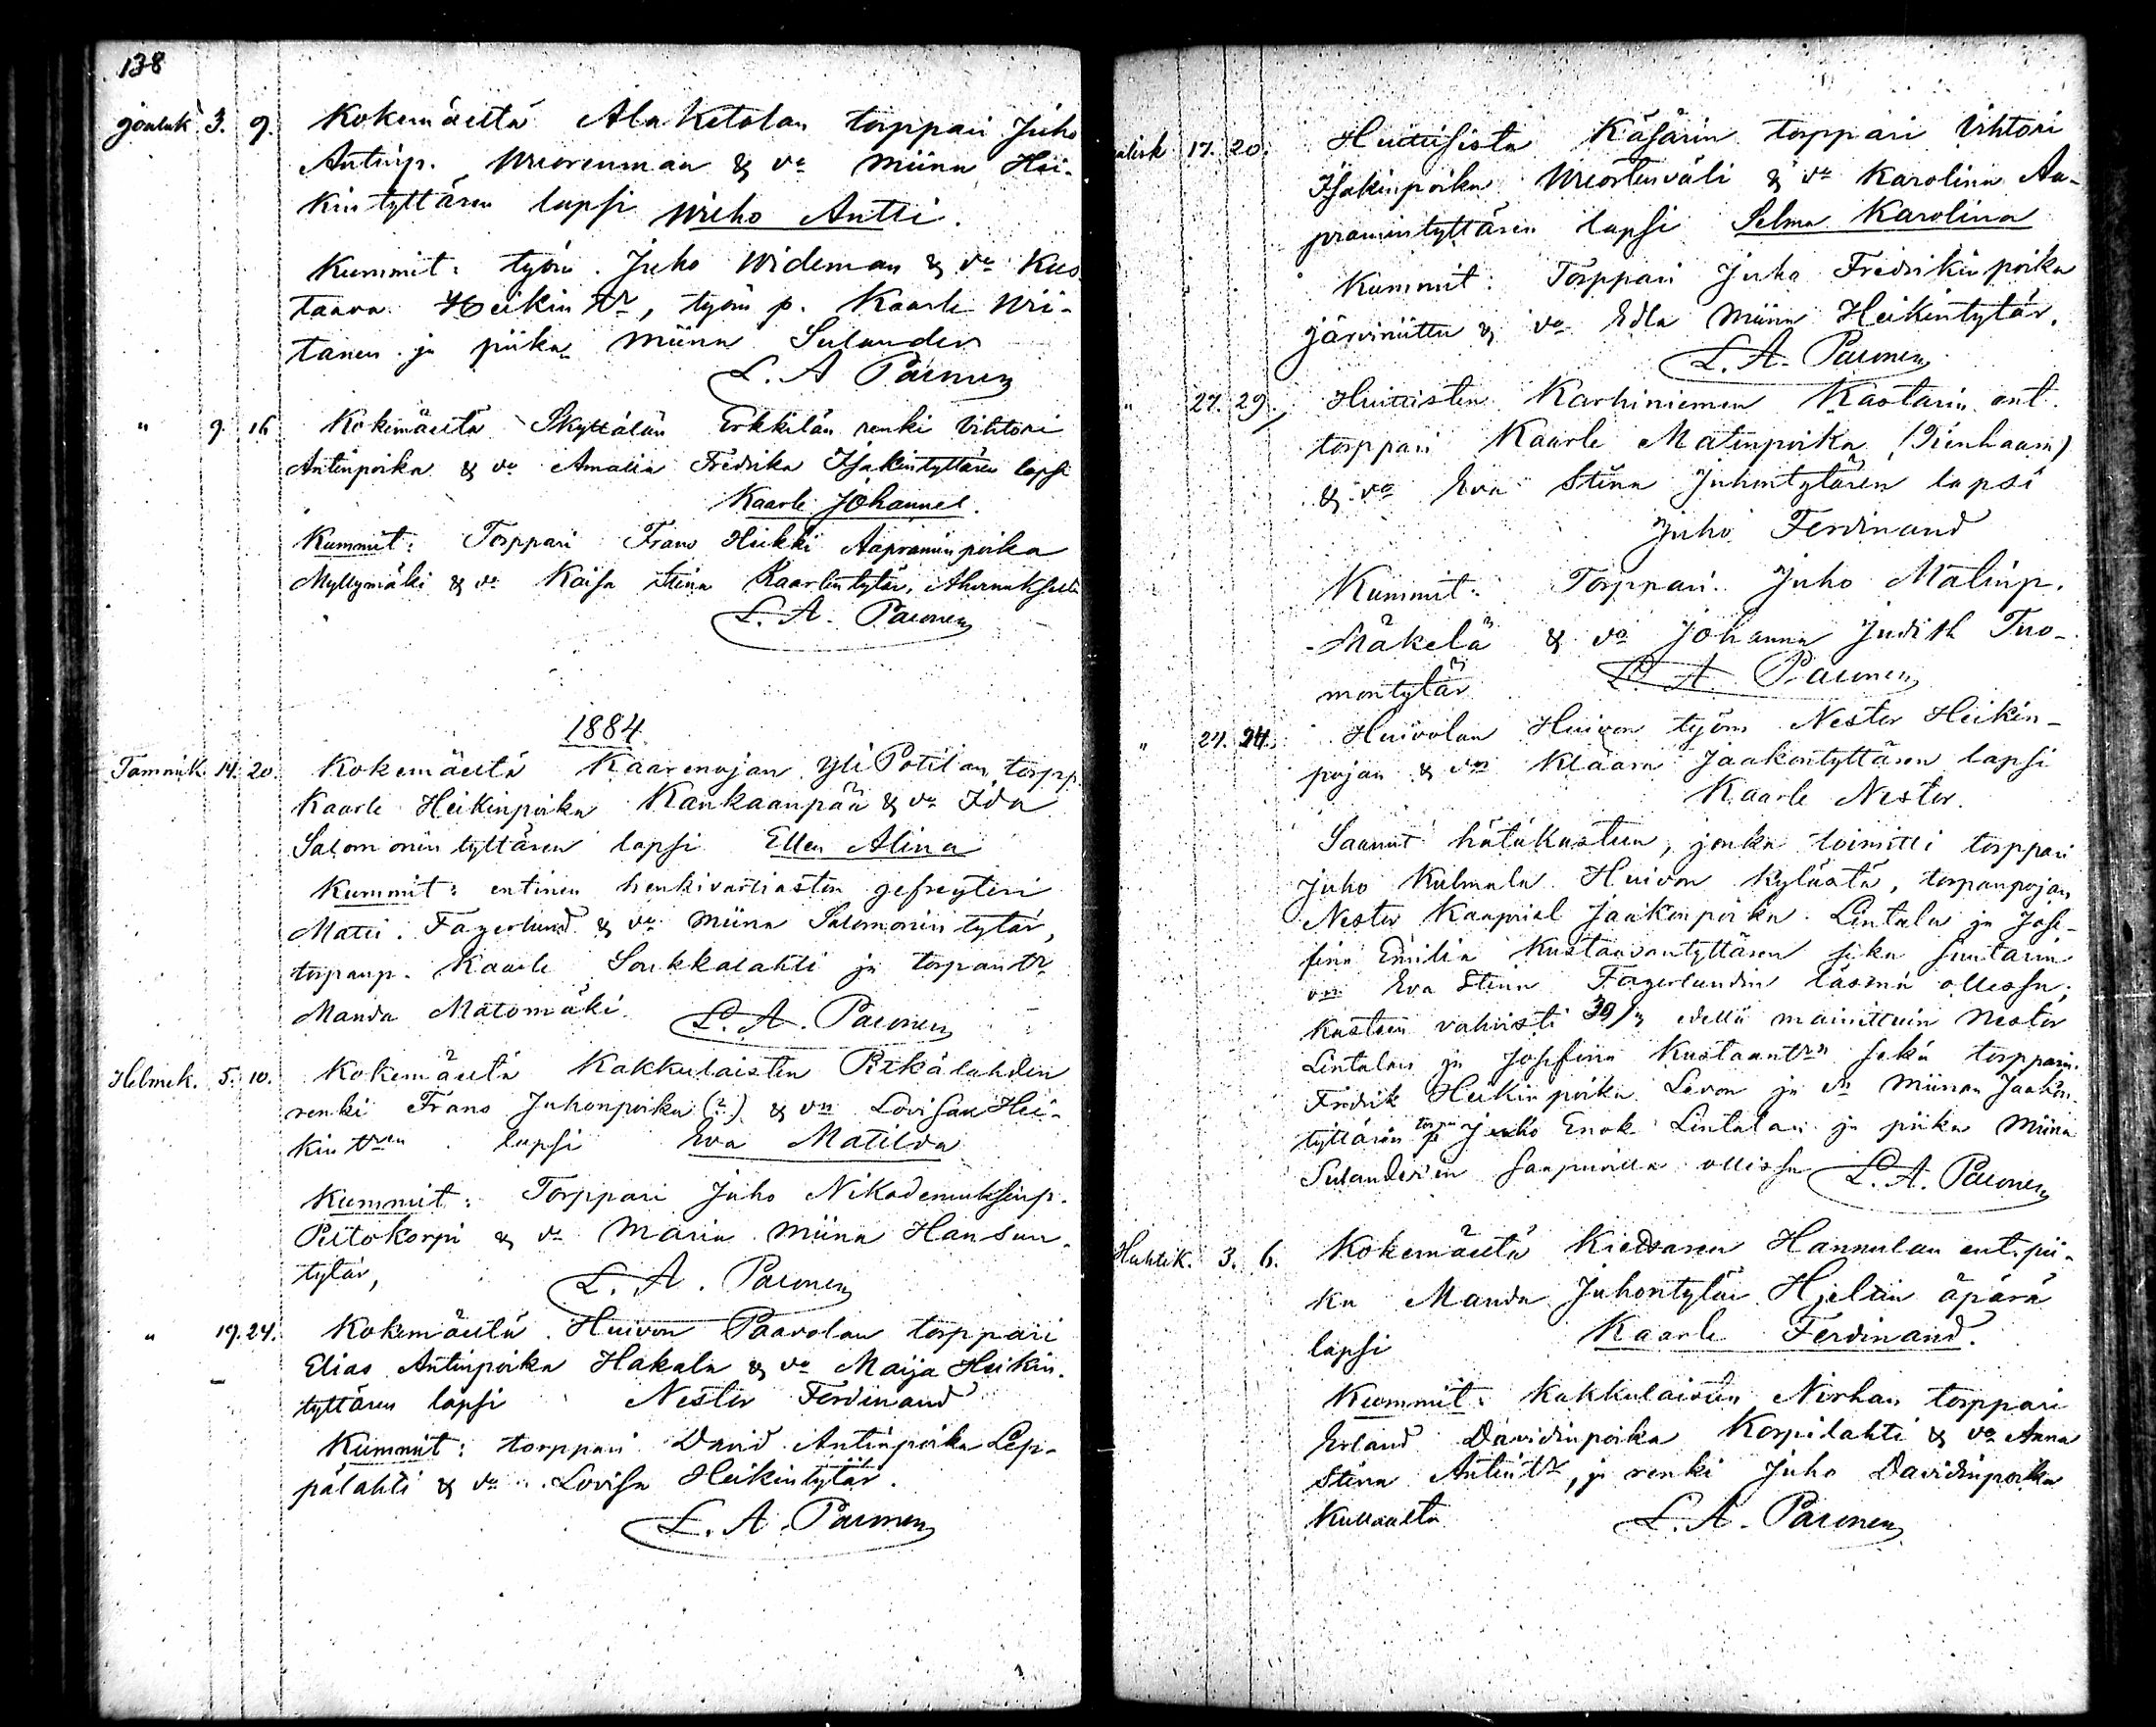 138
Jouluk. 3. 9. Kokemäeltä Ala Ketolan torppari Juho
Antinp. Wuorenmaa & vo Miina Hei-
kintyttären lapsi Wieho Antti.
Kummit: työm. Juho Wideman & vo Kus-
taava Heikintr, työm p. Kaarle Wii-
tanen ja piika Miina Sulander
L. A. Paeonen
" 9 16 Kokemäeltä Skyttälän Erkkilän renki Vihtori
Antinpoika & vo Amalia Fredrika Isakintyttären lapsi
Kaarle Johannes.
Kummit: Torppari Frans Heikki Aapraminpoika
Myllymäki & vo Kaisa Stiina Kaarlentytär,
L. A. Paeonen
1884.
Tammik. 14. 20. Kokemäeltä Kaarenojan Yli Potilan torpp.
Kaarle Heikinpoika Kankaanpää & vo Ida
Salomonin tyttären lapsi Ellen Alina
Kummit: entinen henkivartiaston gefreyteri
Matti Fagerlund & vo Miina Salomonin tytär,
torpanp. Kaarle Soukkalahti ja torpantr
Manda Matomäki. L. A. Paeonen
Helmik. 5. 10. Kokemäeltä Kakkulaisten Pikälahden
renki Frans Juhonpoika (?) & vo Lovisan Hei-
kintren lapsi Eva Matilda
Kummit: Torppari Juho Nikodemuksenp.
Piitokorpi & vo Maria Miina Hansun-
tytär, L. A. Paeonen
" 19. 24. Kokemäeltä Huivon Paavolan torppari
Elias Antinpoika Hakala & vo Maija Heikin-
tyttären lapsi Nestor Ferdinand
Kummit: torppari David Antinpoika Lep-
pälahti & vo Lovisa Heikintytär.
L. A. Paeonen
17. 20. Huittisista Käsärin torppari Vihtori
Isakinpoika Wuortenväli & vo Karolina Aa-
pramintyttären lapsi Selma Karolina
Kummit: Torppari Juha Fredrikinpoika
Järviniittu & vo Edla Miina Heikintytär.
L. A. Paeonen
" 27. 29. Huittisten Karhiniemen Kastarin ent.
torppari Kaarle Matinpoika (Tienhaara)
& vo Eva Stina Juhontytären lapsi
Juho Ferdinand
Kummit: Torppari Juho Matinp.
Mäkelä & vo Johanna Judith Tuo-
montytär L. A. Paeonen
" 24. 24. Huivolan Huivon työm Nestor Heikin-
pojan & von Klaara Jaakontyttären lapsi
Kaarle Nestor.
Saanut hätäkasteen, jonka toimitti torppari
Juho Kulmala Huivon kylästä, torpanpojan
Nestor Kaapriel Jaakonpoika Lintala ja Jose-
fina Emilia Kustaavantyttären sekä suutarin
von Eva Stina Fagerlundin läsnä ollessa;
kasteen vahvisti 30/3 edellä mainittuin Nestor
Lintalan ja Josefina Kustaantrn sekä torpparin
Fredrik Heikinpoika Levon ja vn Miinan Jaakon-
tyttären torpp Juho Enok Lintalan ja piika Miina
Sulanderin saapuvilla ollissa L. A. Paeonen
Huhtik. 3. 6. Kokemäeltä Kiettaren Hannulan ent. pii-
ka Manda Juhontytär Hjeltin äpärä
lapsi Kaarle Ferdinand.
Kummit: Kakkulaisten Nirhan torppari
Erland Davidinpoika Korpilahti & vo Anna
Stina Antintr, ja renki Juho Davidinpoika
Kullaalta L. A. Paeonen